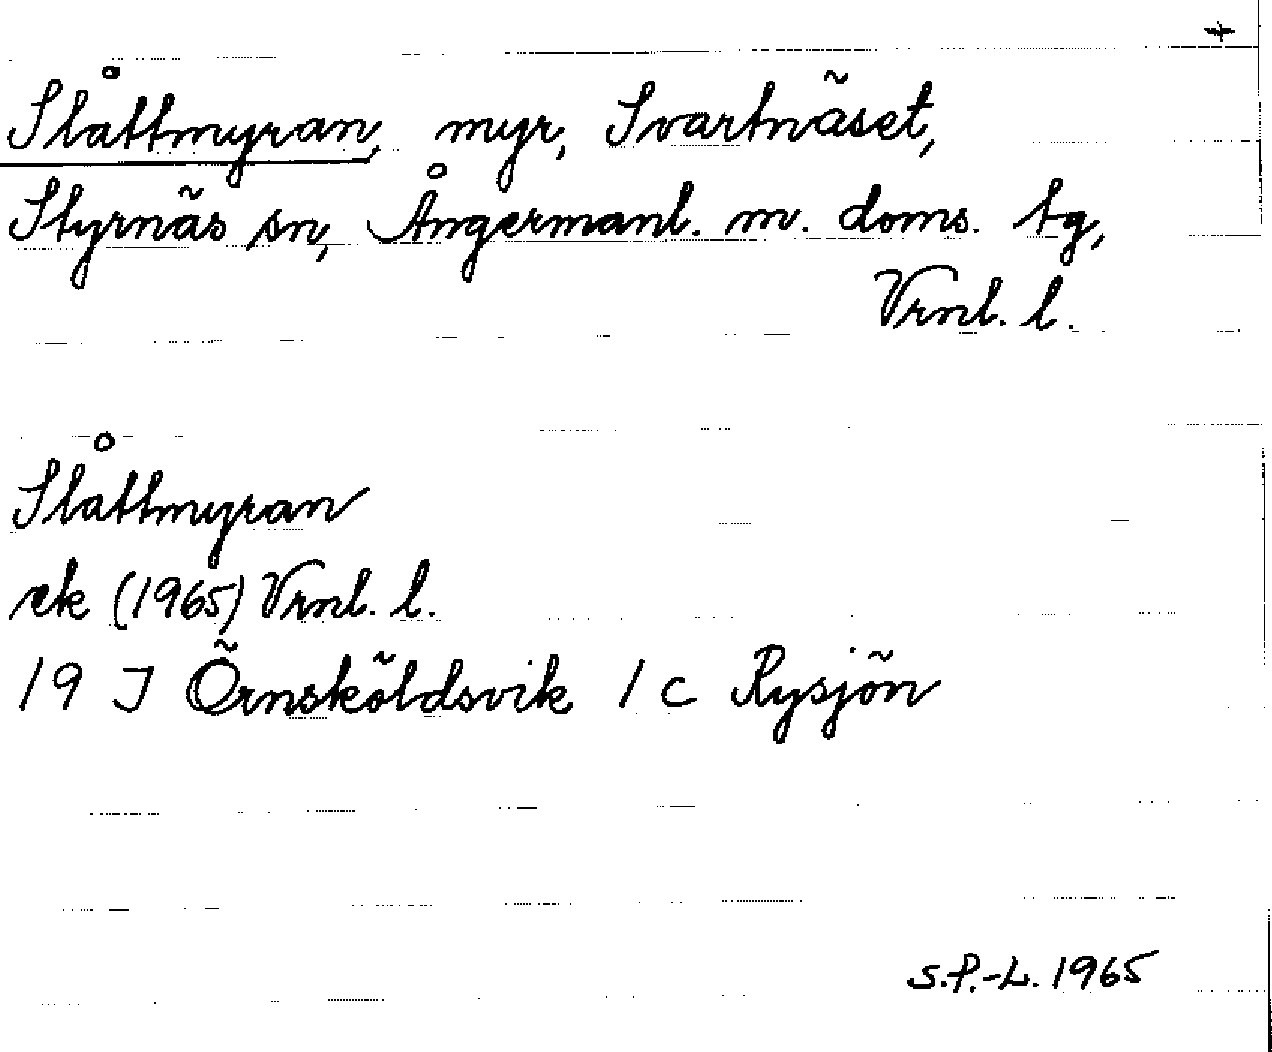 Slåttmyran, myr, Svartnäset,
Styrnäs sn, Ångermanl. m. doms. tg,
Vrnl. l.
Slåttmyran
ek (1965) Vrnl. l.
19 J Örnsköldsvik 1 c Rysjön
S.P.-L. 1965